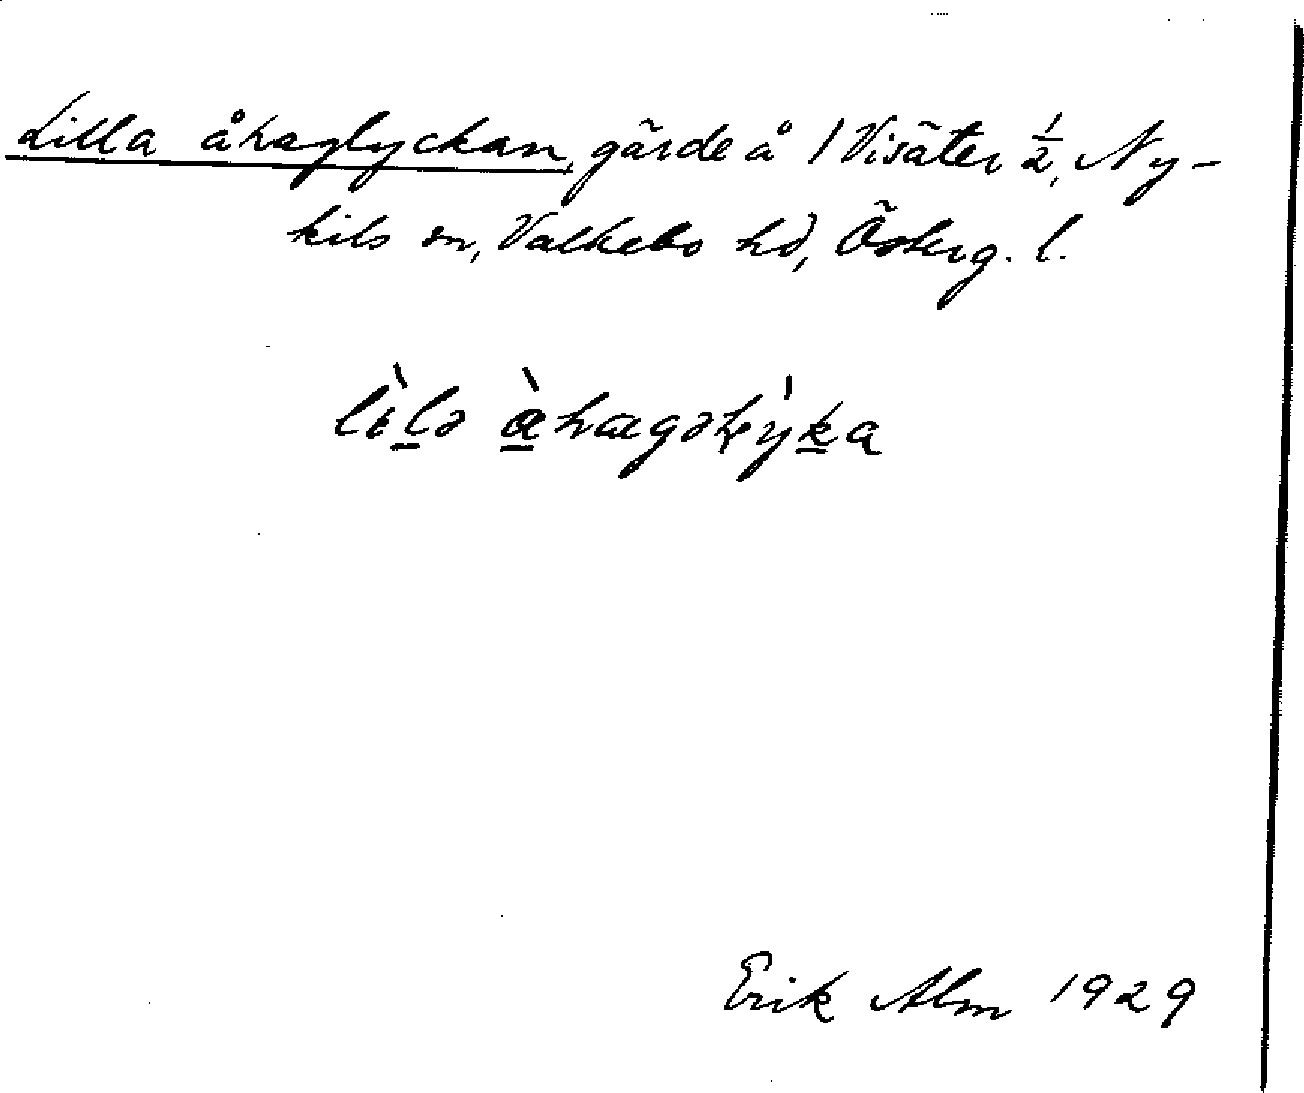 Lilla åhaglyckan, gärde å 1 Visäter ½, Ny-
kils sn, Valkebo hd, Österg. l.
Erik Alm 1929